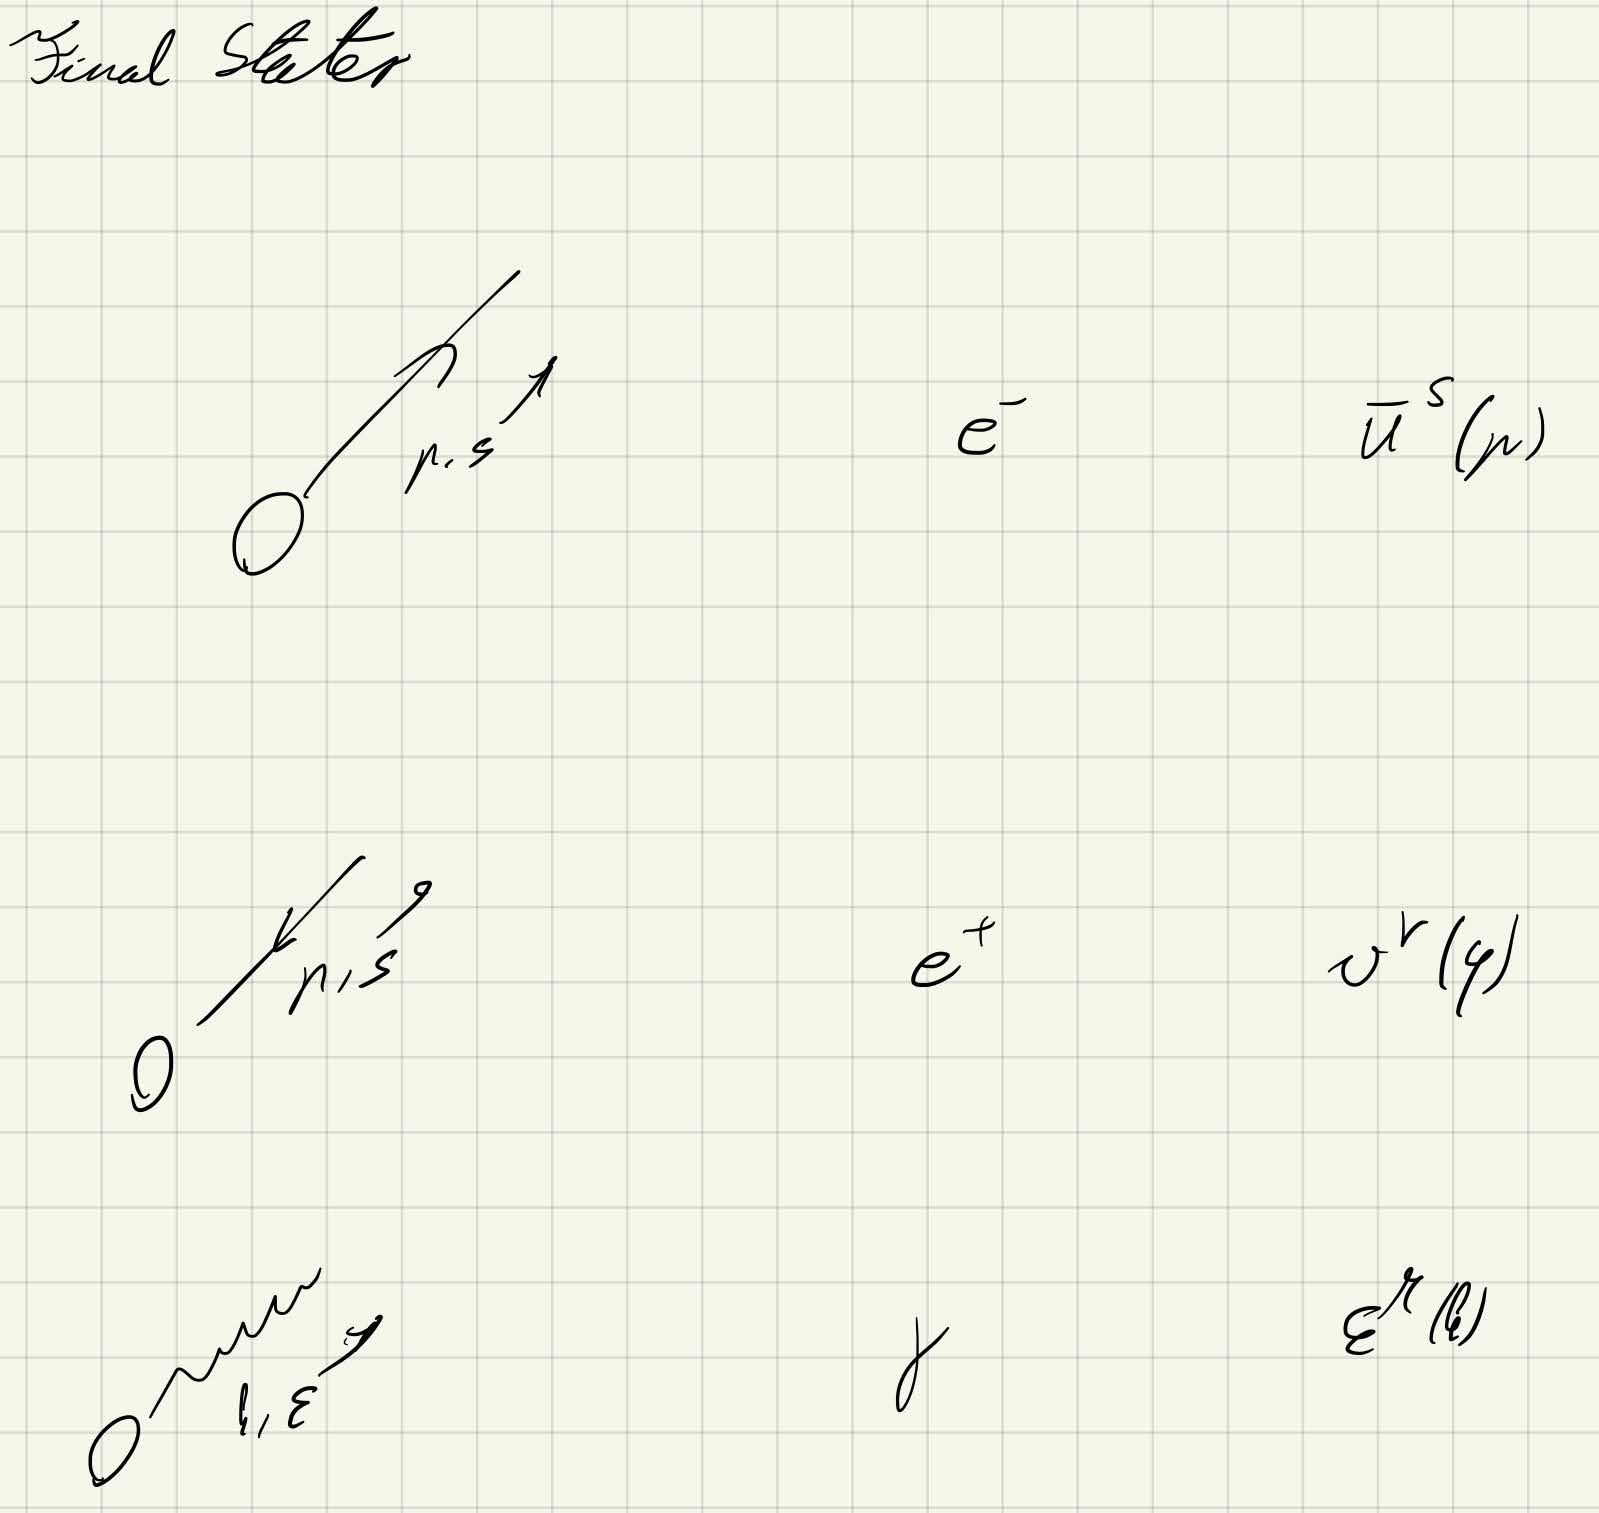 Final States
p, s
e⁻ ū^s(p)
p, s
e⁺ v^r(p)
k, ε
γ ε^r(k)